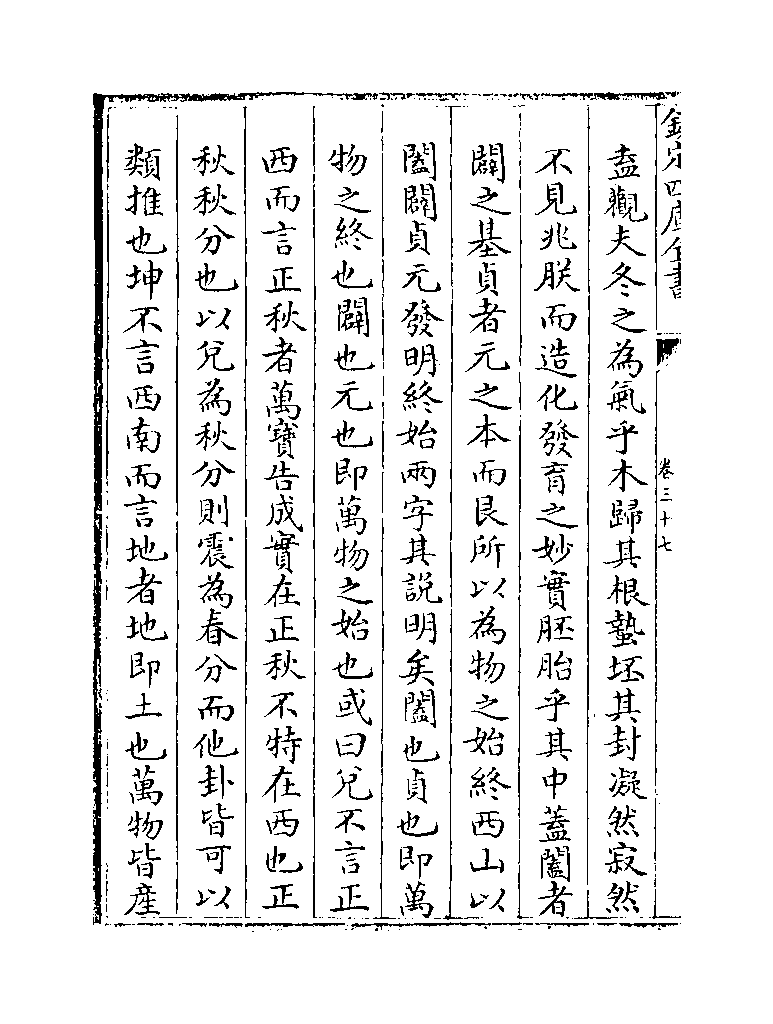 欽定四庫全書
卷三十七
盍觀夫冬之為氣乎木歸其根蟄坯其封凝然寂然
不見兆朕而造化發育之妙實胚胎乎其中蓋闔者
闢之基貞者元之本而艮所以為物之始終西山以
闔闢貞元發明終始兩字其說明矣闔也貞也即萬
物之終也闢也元也即萬物之始也或曰兌不言正
西而言正秋者萬寶告成實在正秋不特在西也正
秋秋分也以兌為秋分則震為春分而他卦皆可以
類推也坤不言西南而言地者地即土也萬物皆產